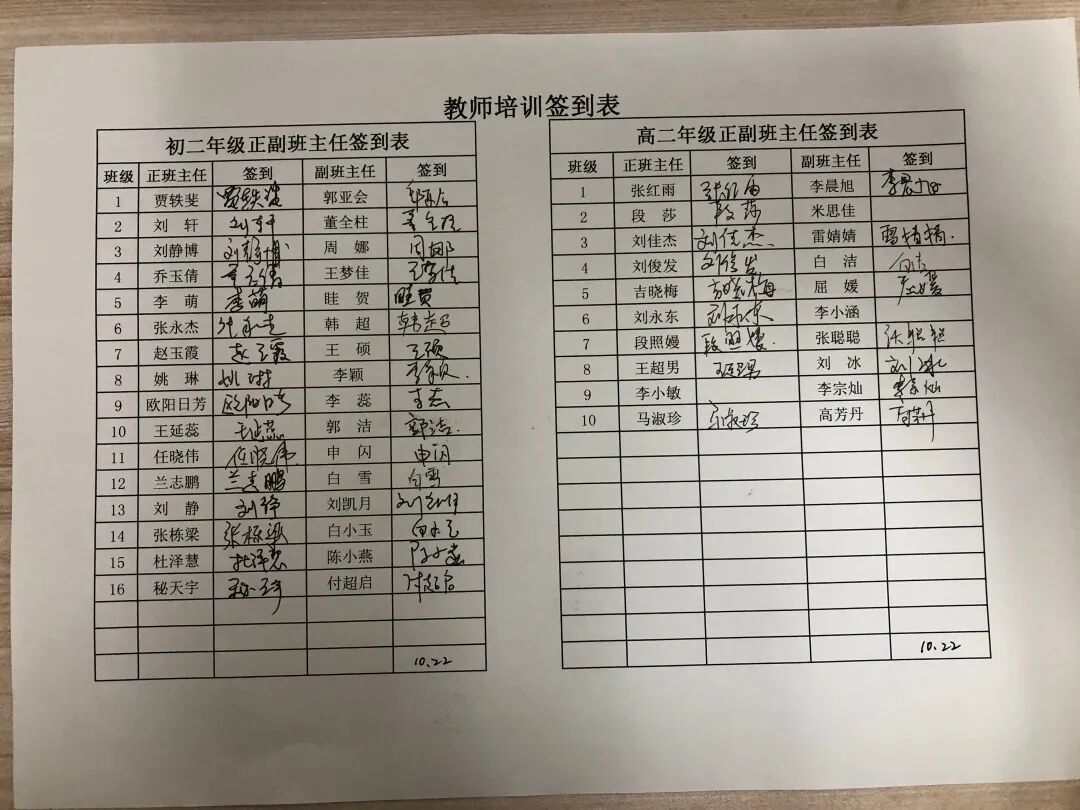 教师培训签到表
初二年级正副班主任签到表
班级 正班主任 签到 副班主任 签到
1 贾轶斐 贾轶斐 郭亚会 郭亚会
2 刘轩 刘轩 董全柱 董全柱
3 刘静博 刘静博 周娜 周娜
4 乔玉倩 乔玉倩 王梦佳 王梦佳
5 李萌 李萌 眭贺 眭贺
6 张永杰 张永杰 韩超 韩超
7 赵玉霞 赵玉霞 王硕 王硕
8 姚琳 姚琳 李颖 李颖
9 欧阳日芳 欧阳日芳 李蕊 李蕊
10 王延蕊 王延蕊 郭洁 郭洁
11 任晓伟 任晓伟 申闪 申闪
12 兰志鹏 兰志鹏 白雪 白雪
13 刘静 刘静 刘凯月 刘凯月
14 张栋梁 张栋梁 白小玉 白小玉
15 杜泽慧 杜泽慧 陈小燕 陈小燕
16 秘天宇 秘天宇 付超启 付超启
10.22
高二年级正副班主任签到表
班级 正班主任 签到 副班主任 签到
1 张红雨 张红雨 李晨旭 李晨旭
2 段莎 段莎 米思佳
3 刘佳杰 刘佳杰 雷婧婧 雷婧婧
4 刘俊发 刘俊发 白洁 白洁
5 吉晓梅 吉晓梅 屈媛
6 刘永东 刘永东 李小涵
7 段照嫚 段照嫚 张聪聪 张聪聪
8 王超男 王超男 刘冰 刘冰
9 李小敏 李宗灿 李宗灿
10 马淑珍 马淑珍 高芳丹 高芳丹
10.22